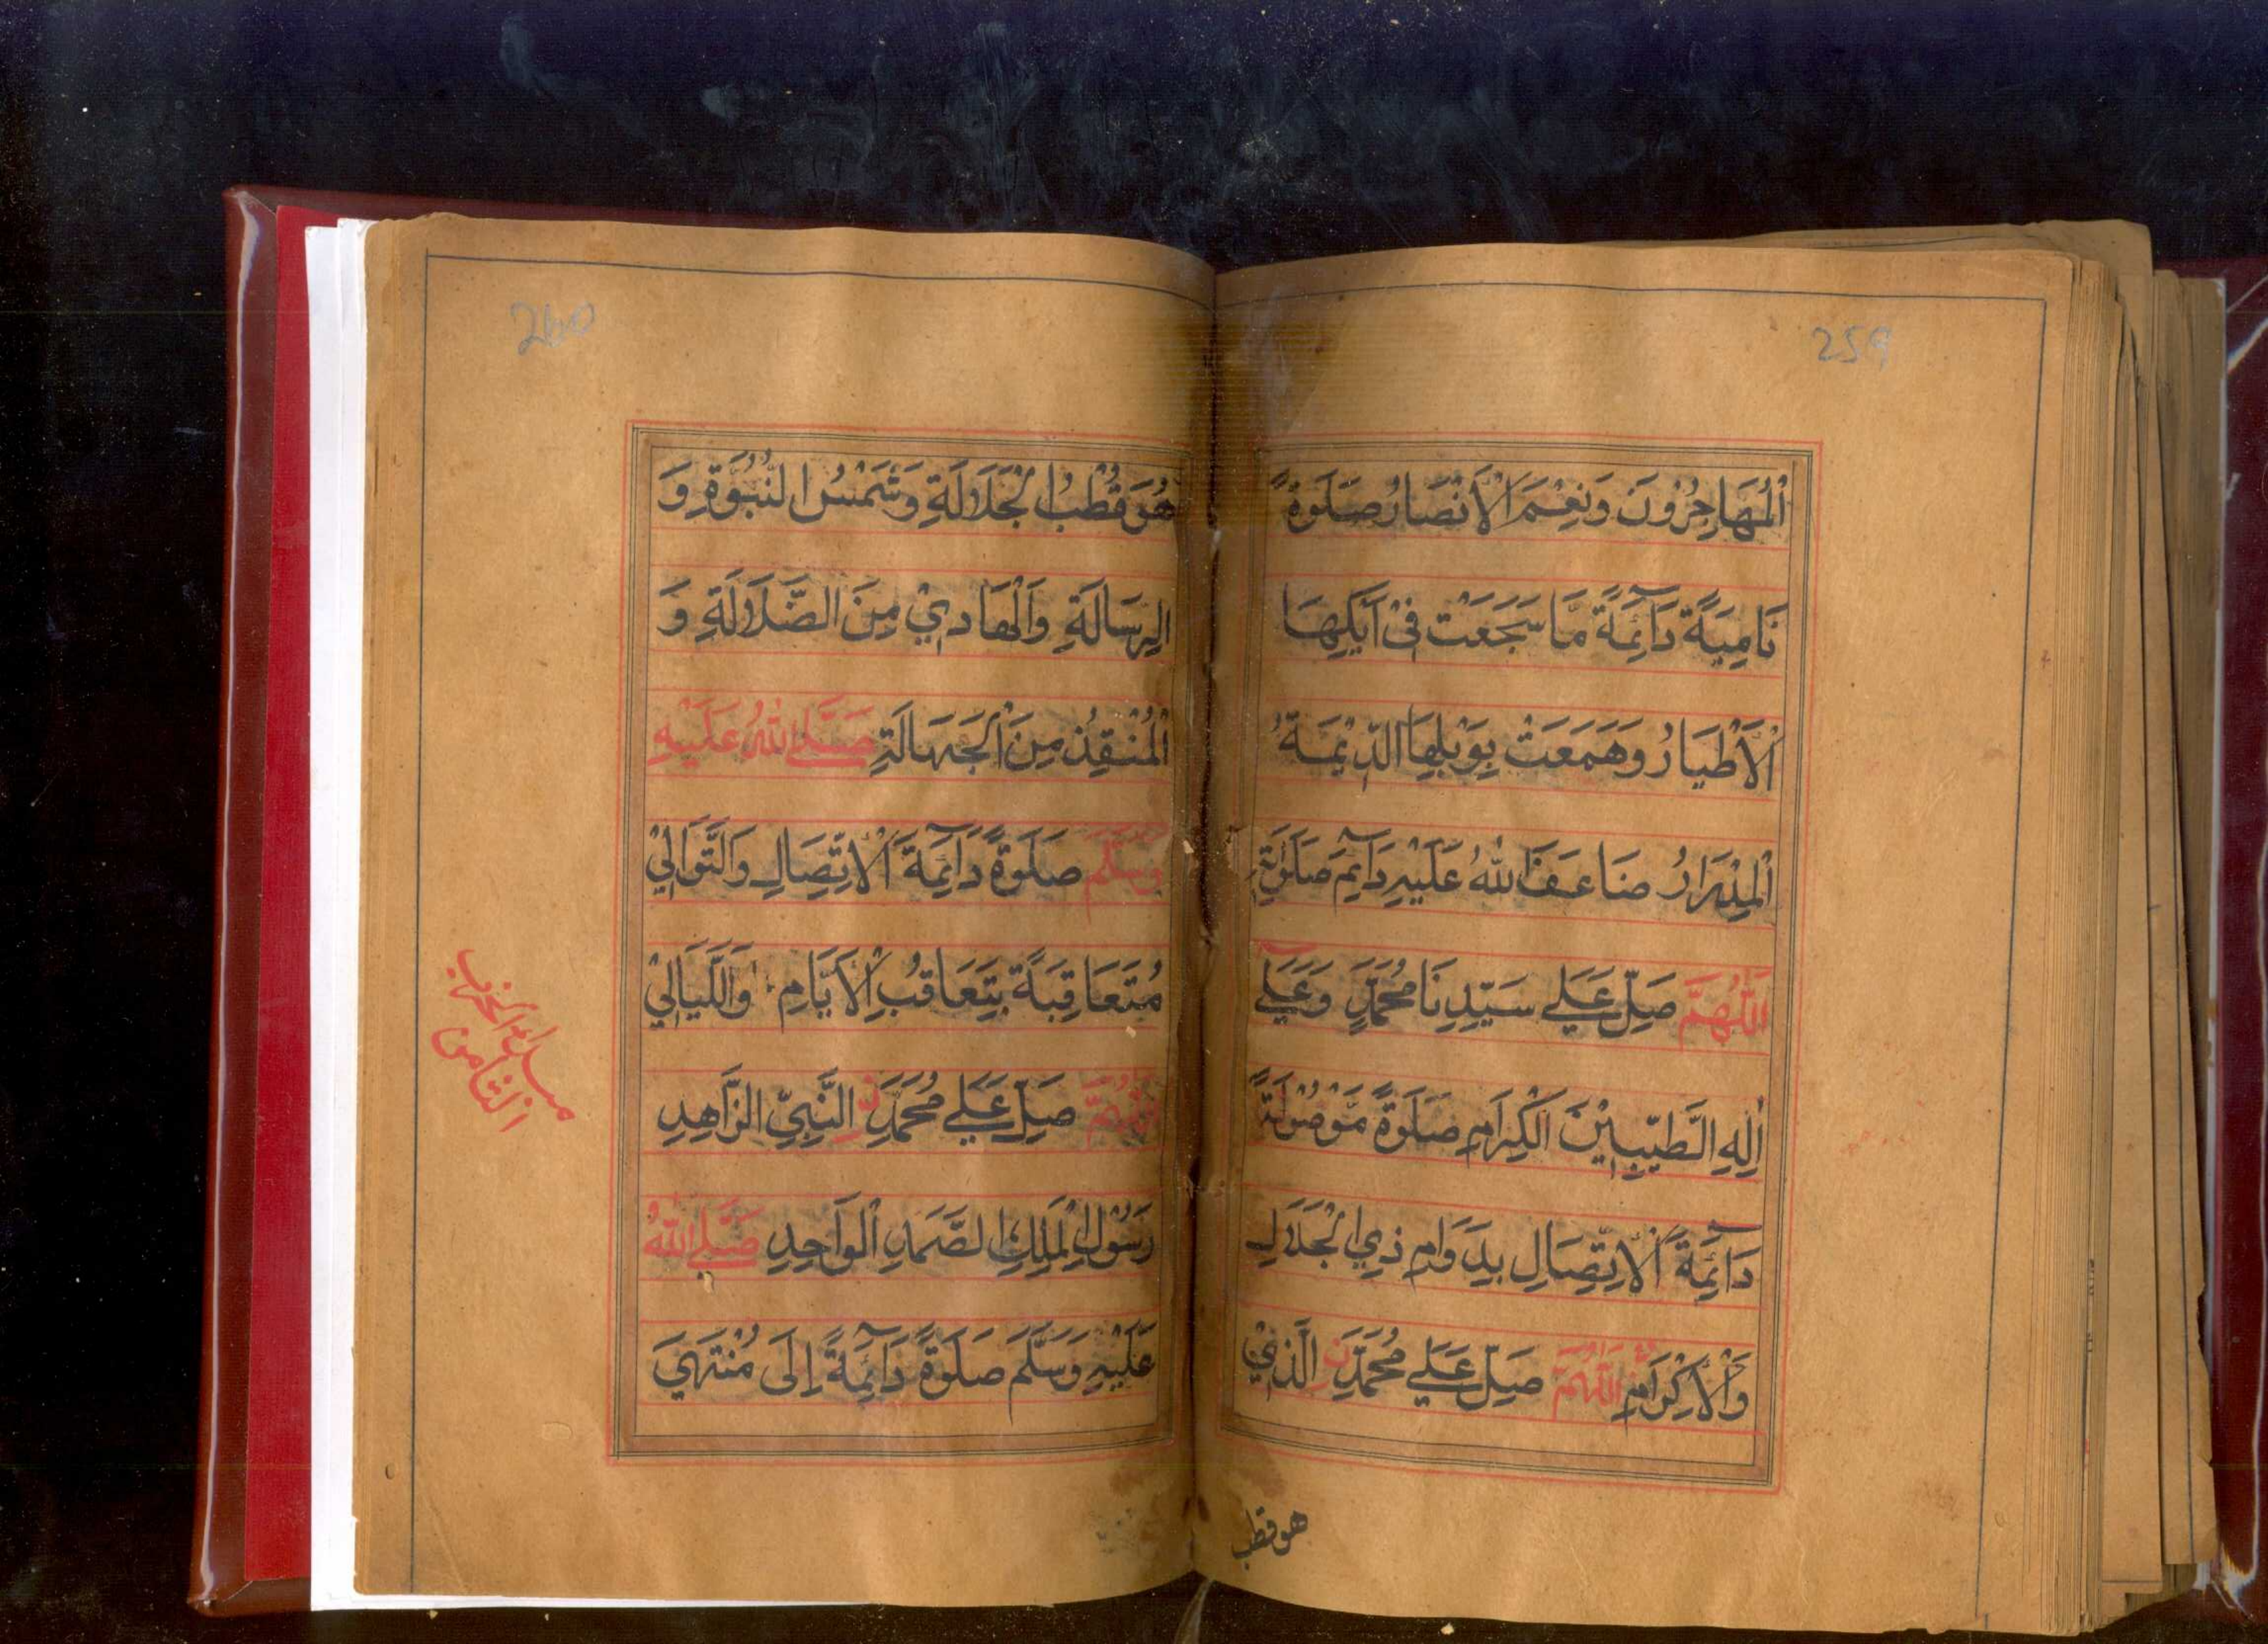 259
اَلْمُهَاجِرُوْنَ وَنِعْمَ الْاَنْصَارُ صَلٰوةً
نَامِيَةً دَآئِمَةً مَّا سَجَعَتْ فِيْ اَيْكِهَا
الْاَطْيَارُ وَهَمَعَتْ بِوَبْلِهَا الدِّيْمَةُ
الْمِدْرَارُ ضَاعَفَ اللهُ عَلَيْهِ دَآئِمَ صَلٰوتِهٖ
اَللّٰهُمَّ صَلِّ عَلٰي سَيِّدِنَا مُحَمَّدٍ وَعَلٰي
اٰلِهِ الطَّيِّبِيْنَ الْكِرَامِ صَلٰوةً مَّوْصُوْلَةً
دَآئِمَةَ الْاِتِّصَالِ بِدَوَامِ ذِي الْجَلَالِ
وَالْاِكْرَامِ اَللّٰهُمَّ صَلِّ عَلٰي مُحَمَّدِنِ الَّذِيْ
هوقطب
260
هُوَ قُطْبُ الْجَلَالَةِ وَشَمْسُ النُّبُوَّةِ وَ
الرِّسَالَةِ وَالْهَادِيْ مِنَ الضَّلَالَةِ وَ
الْمُنْقِذُ مِنَ الْجَهَالَةِ صَلَّي اللهُ عَلَيْهِ
وَسَلَّمَ صَلٰوةً دَآئِمَةَ الْاِتِّصَالِ وَالتَّوَالِيْ
مُتَعَاقِبَةً بِتَعَاقُبِ الْاَيَّامِ وَاللَّيَالِيْ
اَللّٰهُمَّ صَلِّ عَلٰي مُحَمَّدِنِ النَّبِيِّ الزَّاهِدِ
رَسُوْلِ الْمَلِكِ الصَّمَدِ الْوَاحِدِ صَلَّي اللهُ
عَلَيْهِ وَسَلَّمَ صَلٰوةً دَآئِمَةً اِلٰى مُنْتَهَي
الحزب
الثامن